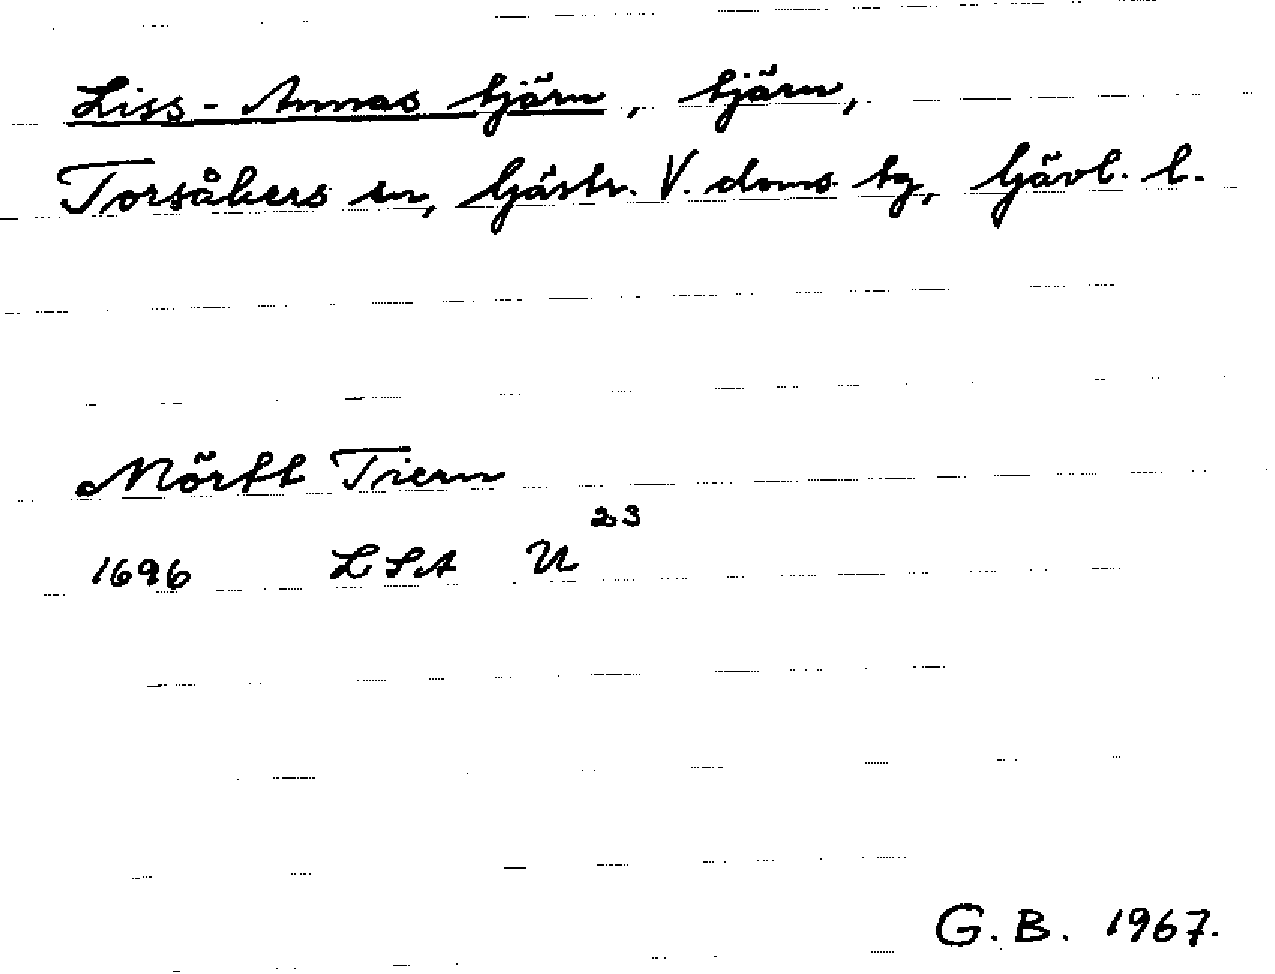 Liss-Annas tjärn, tjärn,
Torsåkers sn, Gästr. V. doms. tg, Gävl. l.
Mörtt Tiern
1696 LSA U 23
G.B. 1967.